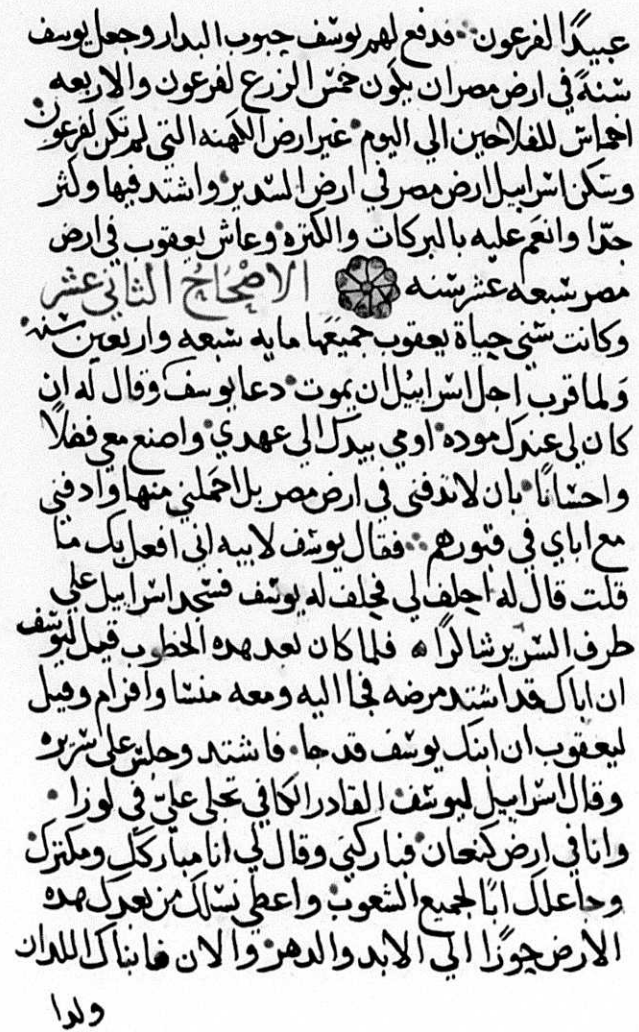 عبيدًا لفرعون فدفع لهم يوسف حبوب البدار وجعل يوسف
سنةً في ارض مصر ان يكون خمس الزرع لفرعون والاربعه
اخماس للفلاحين الي اليوم غير ارض الكهنه التي لم تكن لفرعون
وسكن اسراييل ارض مصر في ارض السدير واشتد فيها وكثر
جدًا وانعم عليه بالبركات والكثره وعاش يعقوب في ارض
مصر سبعه عشر سنه الاصْحَاحُ الثاني عشر
وكانت سني حياة يعقوب جميعها مايه سبعه واربعين سنه
ولما قرب اجل اسراييل ان يموت دعا يوسف وقال له ان
كان لي عندك موده اومي بيدك الي عهدي واصنع معي فضلًا
واحسانًا بان لا تدفني في ارض مصر بل احملني منها وادفني
مع اباي في قبورهم فقال يوسف لابيه اني افعل بك ما
قلت قال له احلف لي فحلف له يوسف فسجد اسراييل علي
طرف السرير شاكرًا فلما كان بعد هده الخطوب قيل ليوسف
ان اباك قد اشتد مرضه فجا اليه ومعه منسا وافرام وقيل
ليعقوب ان ابنك يوسف قد جا فاشتد وجلس علي سريره
وقال اسراييل ليوسف القادر الكافي تجلي عليّ في لوزا
وانا في ارض كنعان فباركني وقال لي انا مباركك ومكثرك
وجاعلك ابًا لجميع الشعوب واعطي نسلك من بعدك هده
الارض حوزًا الي الابد والدهر والان فابناك اللدان
ولدا